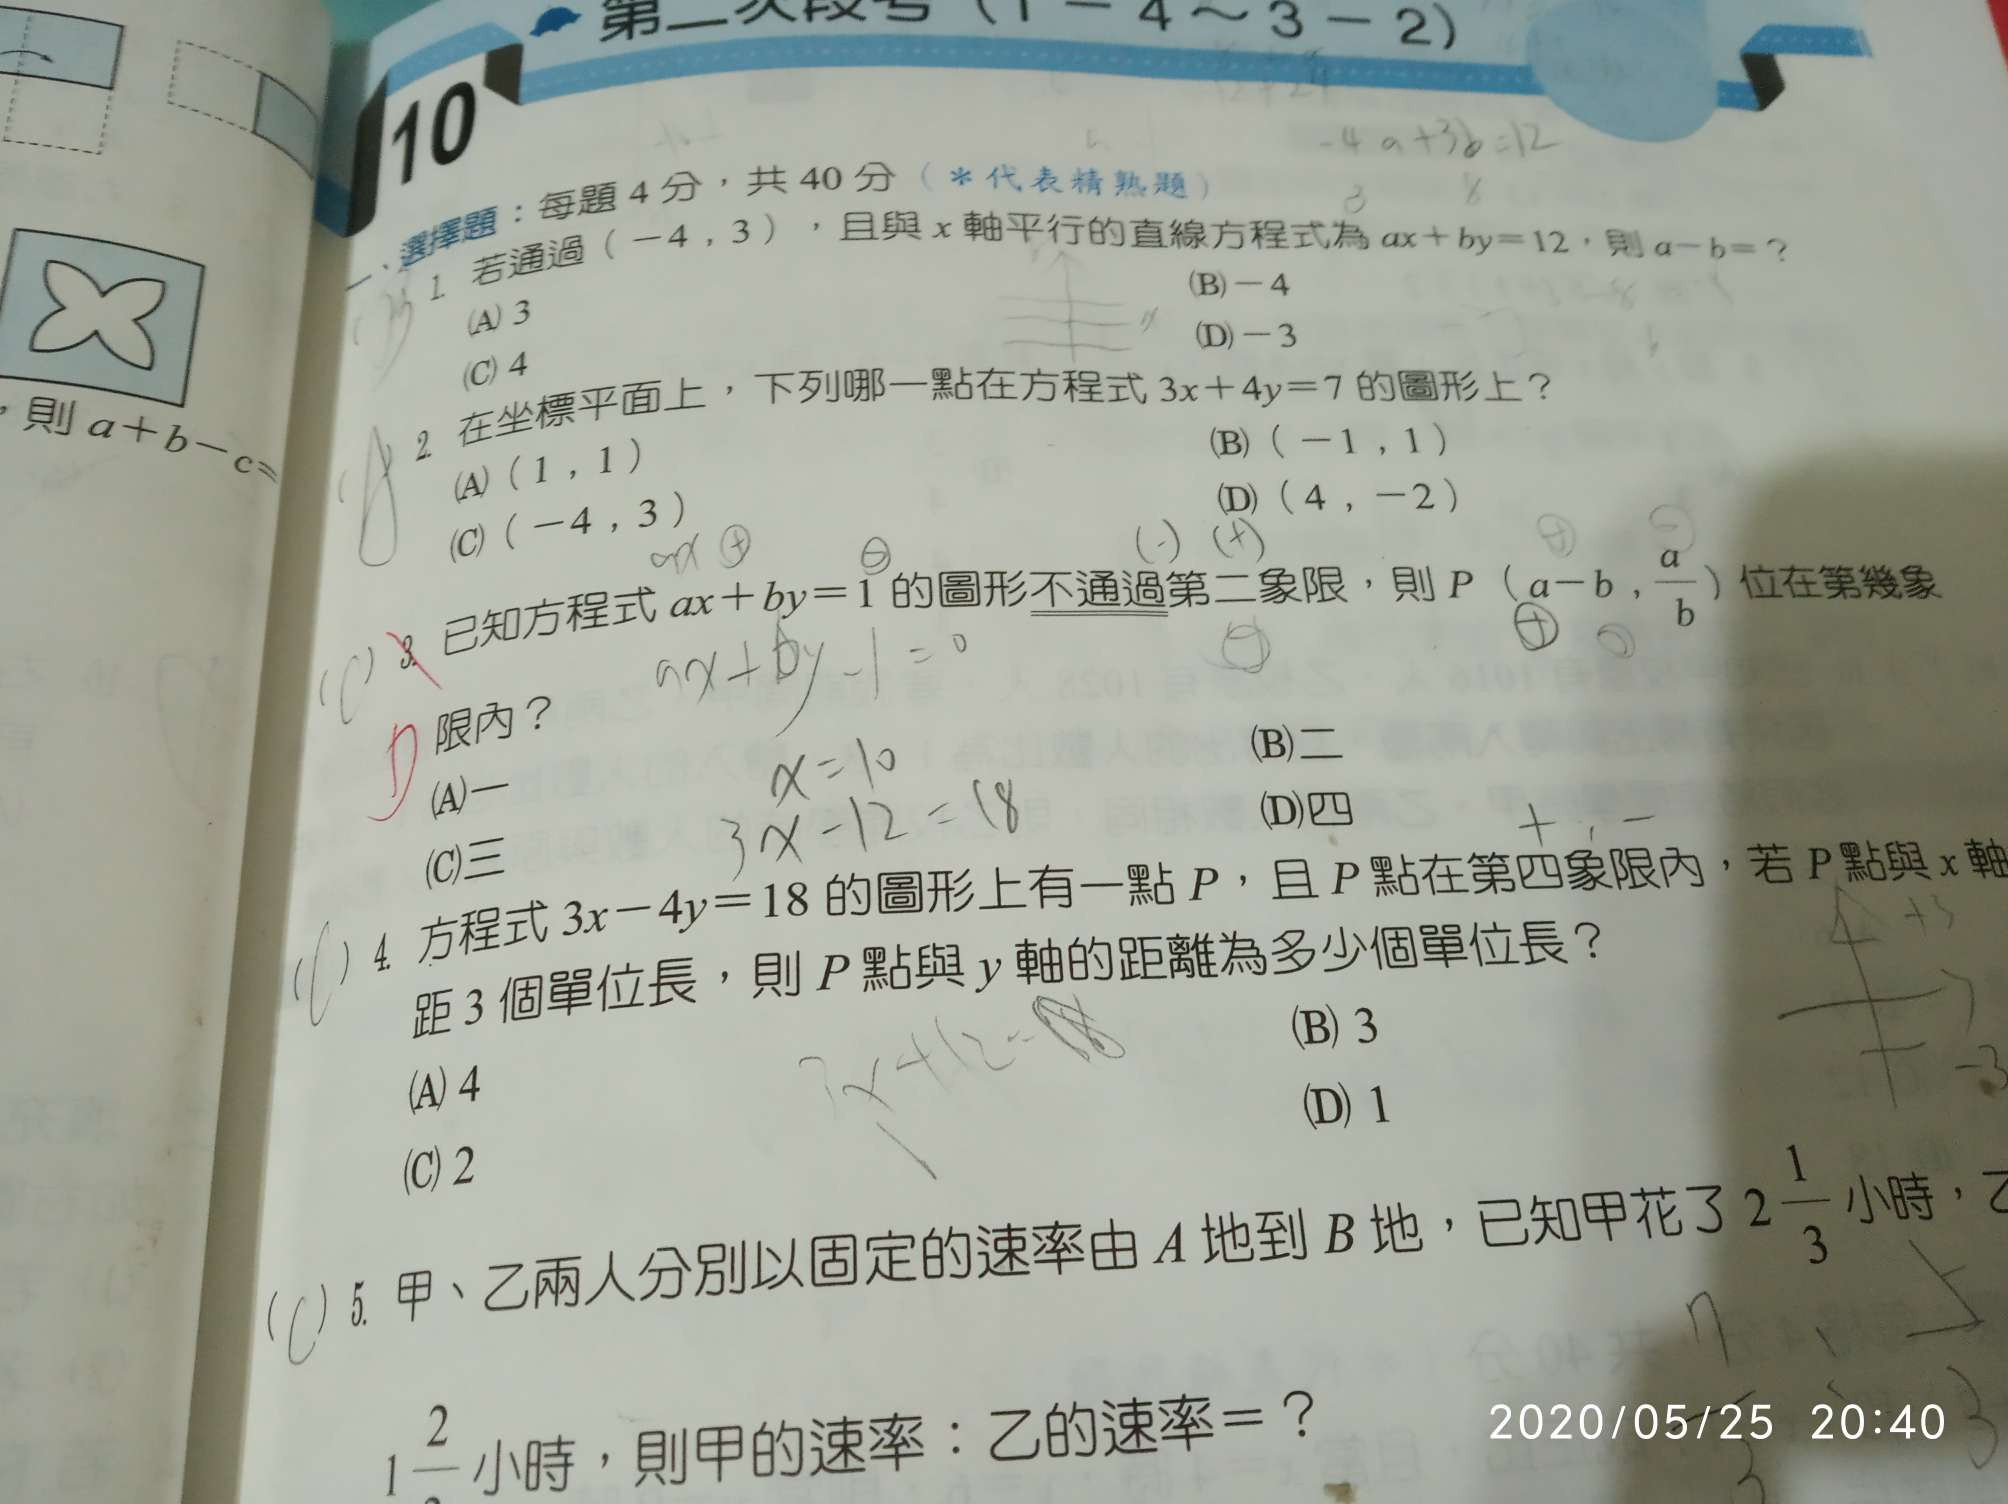 第二次段考（1－4～3－2）
10
一、選擇題：每題 4 分，共 40 分（＊代表精熟題）
-4a+3b=12
1. 若通過（－4，3），且與 x 軸平行的直線方程式為 ax＋by＝12，則 a－b＝？
(A) 3
(B)－4
(C) 4
(D)－3
，則 a＋b－c＝
2. 在坐標平面上，下列哪一點在方程式 3x＋4y＝7 的圖形上？
(A)（1，1）
(B)（－1，1）
(C)（－4，3）
(D)（4，－2）
(-) (+)
(C) 3. 已知方程式 ax＋by＝1 的圖形不通過第二象限，則 P（a－b，a/b）位在第幾象
ax+by-1=0
D
限內？
(A)一
(B)二
(C)三
(D)四
x=10
3x-12=18
+，-
(C) 4. 方程式 3x－4y＝18 的圖形上有一點 P，且 P 點在第四象限內，若 P 點與 x 軸
距 3 個單位長，則 P 點與 y 軸的距離為多少個單位長？
+3
-3
(A) 4
(B) 3
(C) 2
(D) 1
(C) 5. 甲、乙兩人分別以固定的速率由 A 地到 B 地，已知甲花了 2 1/3 小時，乙
小時，則甲的速率：乙的速率＝？
2020/05/25 20:40